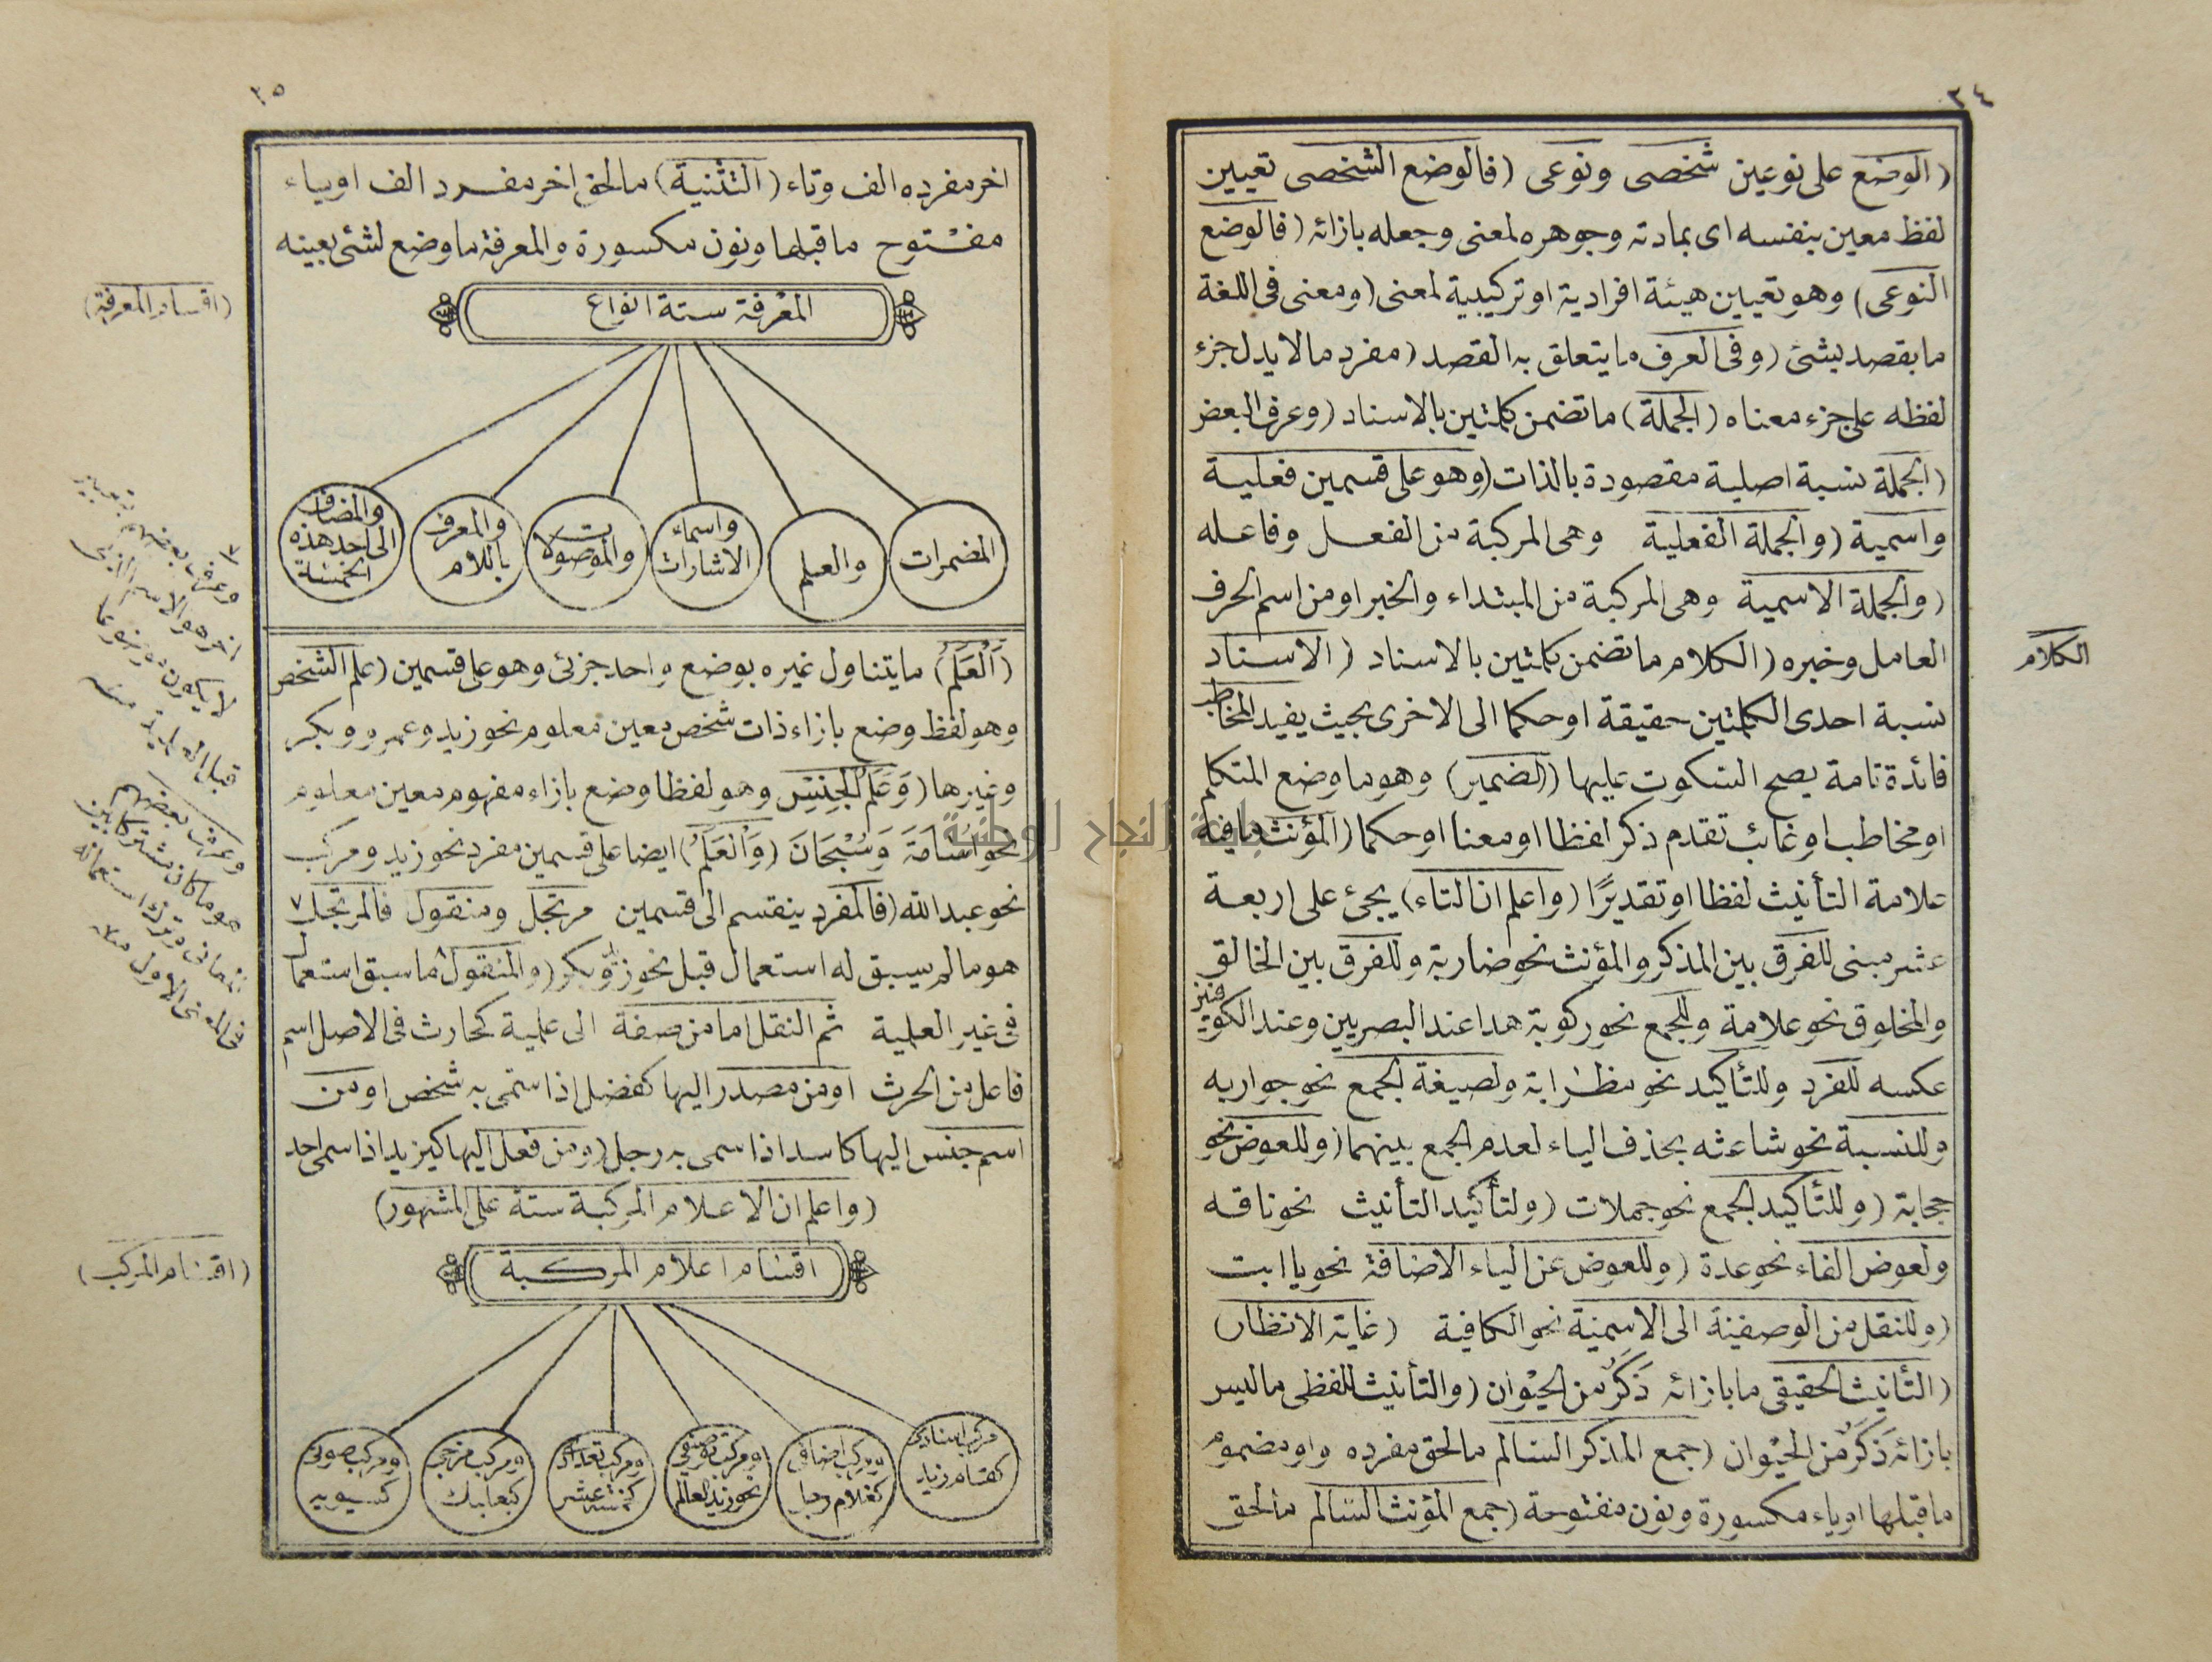 ٢٤
(الوضع على نوعين شخصى ونوعى (فالوضع الشخصى تعيين
لفظ معين بنفسه اى بمادته وجوهره لمعنى وجعله بازائه (فالوضع
النوعى) وهو تعيين هيئة افرادية او تركيبية لمعنى (ومعنى فى اللغة
ما يقصد بشئ (وفى العرف ما يتعلق به القصد (مفرد ما لا يدل جزء
لفظه على جزء معناه (الجملة) ما تضمن كلمتين بالاسناد (وعرف البعض
(الجملة نسبة اصلية مقصودة بالذات (وهو على قسمين فعلية
واسمية (والجملة الفعلية وهى المركبة من الفعل وفاعله
(والجملة الاسمية وهى المركبة من المبتداء والخبر او من اسم الحرف
العامل وخبره (الكلام ما تضمن كلمتين بالاسناد (الاسناد
الكلام
نسبة احدى الكلمتين حقيقة او حكما الى الاخرى بحيث يفيد المخاطب
فائدة تامة يصح السكوت عليها (الضمير) وهو ما وضع المتكلم
او مخاطب او غائب تقدم ذكر لفظا او معنا او حكما (المؤنث ما فيه
علامة التأنيث لفظا او تقديرًا (واعلم ان التاء) يجئ على اربعة
عشر مبنى للفرق بين المذكر والمؤنث نحو ضاربة وللفرق بين الخالق
والمخلوق نحو علامة وللجمع نحو ركوبة هذا عند البصريين وعند الكوفيين
عكسه للفرد وللتأكيد نحو مظرابة ولصيغة الجمع نحو جواربه
وللنسبة نحو شاعثه بحذف الياء لعدم الجمع بينهما (وللعوض نحو
حجابة (وللتأكيد الجمع نحو جملات (ولتأكيد التأنيث نحو ناقه
ولعوض الفاء نحو عدة (وللعوض عن الياء الاضافة نحو يا ابت
(وللنقل من الوصفية الى الاسمية نحو الكافية (غاية الانتظار)
(التأنيث الحقيقى ما بازائه ذَكَرٌ من الحيْوان (والتأنيث اللفظى ما ليس
بازائه ذَكَرٌ من الحيْوان (جمع المذكر السالم ما لحق مفرده واو مضموم
ما قبلها او ياء مكسورة ونون مفتوحة (جمع المؤنث السالم ما لحق
٢٥
اخر مفرده الف وتاء (التثنية) ما لحق اخر مفرد الف او ياء
مفتوح ما قبلها ونون مكسورة والمعرفة ما وضع لشئ بعينه
(اقسام المعرفة)
المعْرفة ستة انواع
المضمرات
والعلم
واسماء
الاشارات
والموصولات
والمعرف
باللام
والمضاف
الى احد هذه
الخمسة
(اَلْعَلَمُ) ما يتناول غيره بوضع واحد جزئى وهو على قسمين (علم الشخص
وهو لفظ وضع بازاء ذات شخص معين معلوم نحو زيد وعمرو وبكر
وغيرها (وَعَلَمُ الْجِنْسِ وهو لفظا وضع بازاء مفهوم معين معلوم
نحو اُسَامَةَ وَسُبْحَانَ (وَالْعَلَمُ) ايضا على قسمين مفرد نحو زيد ومركب
نحو عبد الله (فالمفرد ينقسم الى قسمين مرتجل ومنقول فالمرتجل ٧
هو ما لم يسبق له استعمال قبل نحو زيد وبكر (والمنقول ٨ ما سبق استعمال
فى غير العلمية ثم النقل اما من صفة الى علمية كحارث فى الاصل اسم
فاعل من الحرث او من مصدر اليها كفضل اذا سمى به شخص او من
اسم جنس اليها كاسد اذا سمى به رجل (ومن فعل اليها كيزيد اذا سمى احد
(واعلم ان الاعلام المركبة ستة على المشهور)
(اقسام المركب)
اقسام اعلام المركبة
مركب اسنادى
كقام زيد
ومركب اضافى
كغلام رجل
ومركب توصيفى
نحو زيد العالم
ومركب تعدادى
كخمسة عشر
ومركب مزجى
كبعلبك
ومركب صوتى
كسيبويه
٧
وعرف بعضهم
اخر هو الاسم الذى
لا يكون
قبل العلمية منه
وعرف بعضهم
هو ما كان مشتركا بين
المعانى وترك استعماله
فى المعنى الاول منه
جامعة النجاح الوطنية